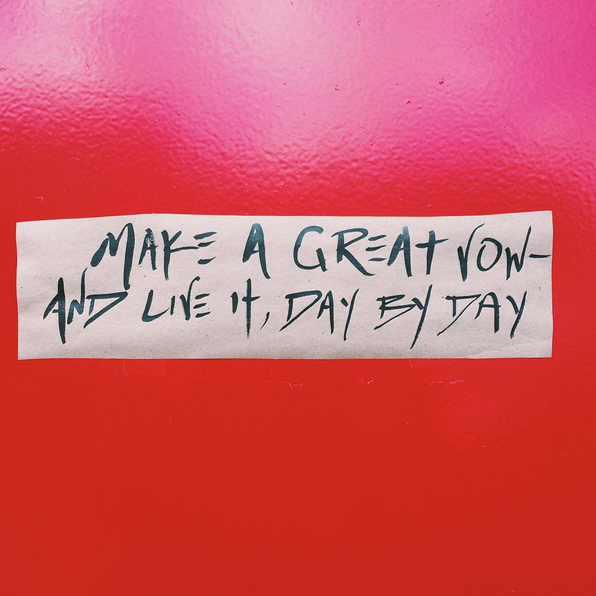 MAKE A GREAT VOW-
AND LIVE IT, DAY BY DAY